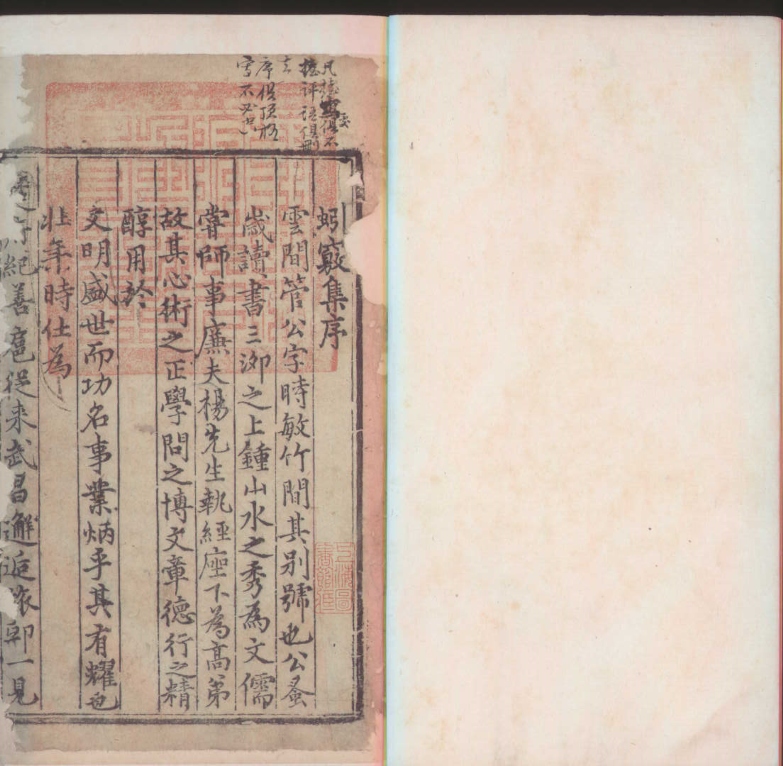 凡

序俱頂格
寫不必
蚓竅集序
雲間管公字時敏竹間其別號也公蚤
歲讀書三泖之上鍾山水之秀為文儒
嘗師事廉夫楊先生執經座下為高弟
故其心術之正學問之博文章德行之精
醇用於
文明盛世而功名事業炳乎其有耀也
壯年時仕為
紀善扈從來武昌邂逅旅邸一見